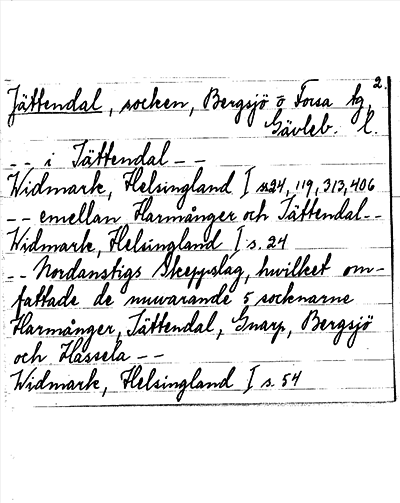 2.
Jättendal, socken, Bergsjö o Forsa tg,
Gävleb. l.
-- i Jättendal --
Widmark, Helsingland I s. 24, 119, 313, 406
-- emellan Harmånger och Jättendal --
Widmark, Helsingland I s. 24
-- Nordanstigs Skeppslag, hwilket om-
fattade de nuwarande 5 socknarne
Harmånger, Jättendal, Gnarp, Bergsjö
och Hassela --
Widmark, Helsingland I s. 54